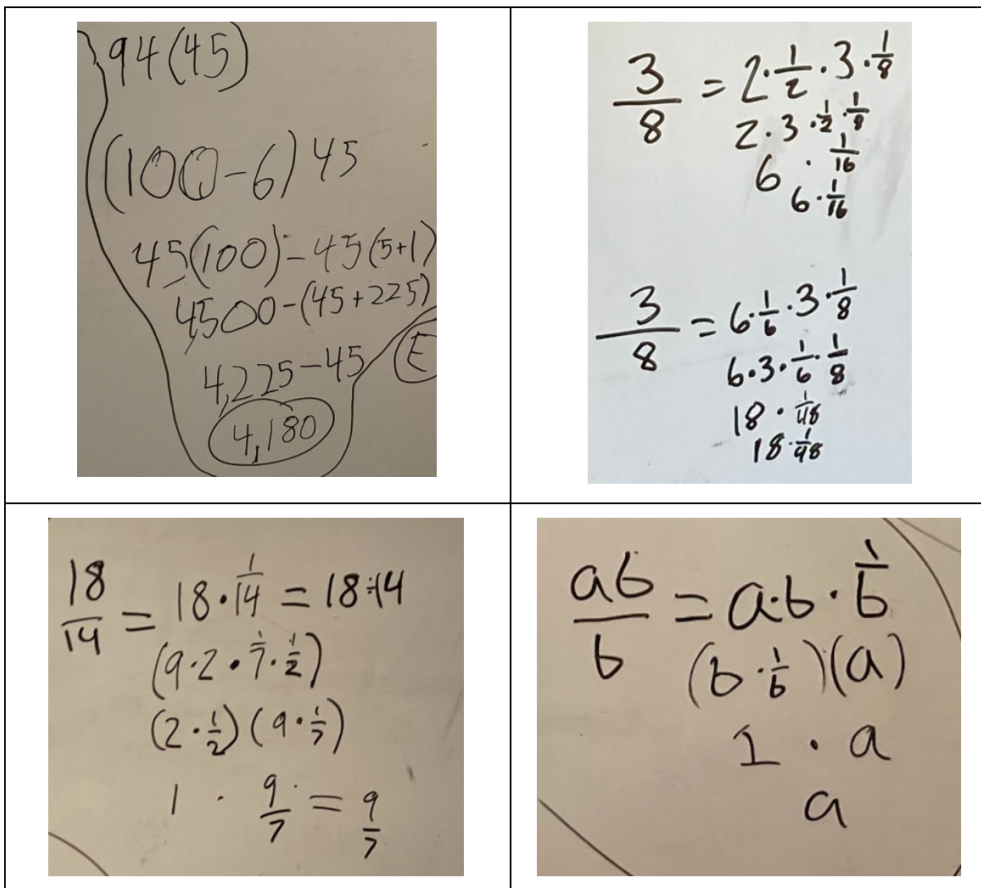 94(45)
(100-6)45
45(100)-45(5+1)
4,500-(45+225)
4,225-45
4,180
E
3/8 = 2·1/2·3·1/8
2·3·1/2·1/8
6 · 1/16
6·1/16
3/8 = 6·1/6·3·1/8
6·3·1/6·1/8
18·1/48
18·1/48
18/14 = 18·1/14 = 18÷14
(9·2·1/7·1/2)
(2·1/2)(9·1/7)
1 · 9/7 = 9/7
ab/b = a·b·1/b
(b·1/b)(a)
1 · a
a